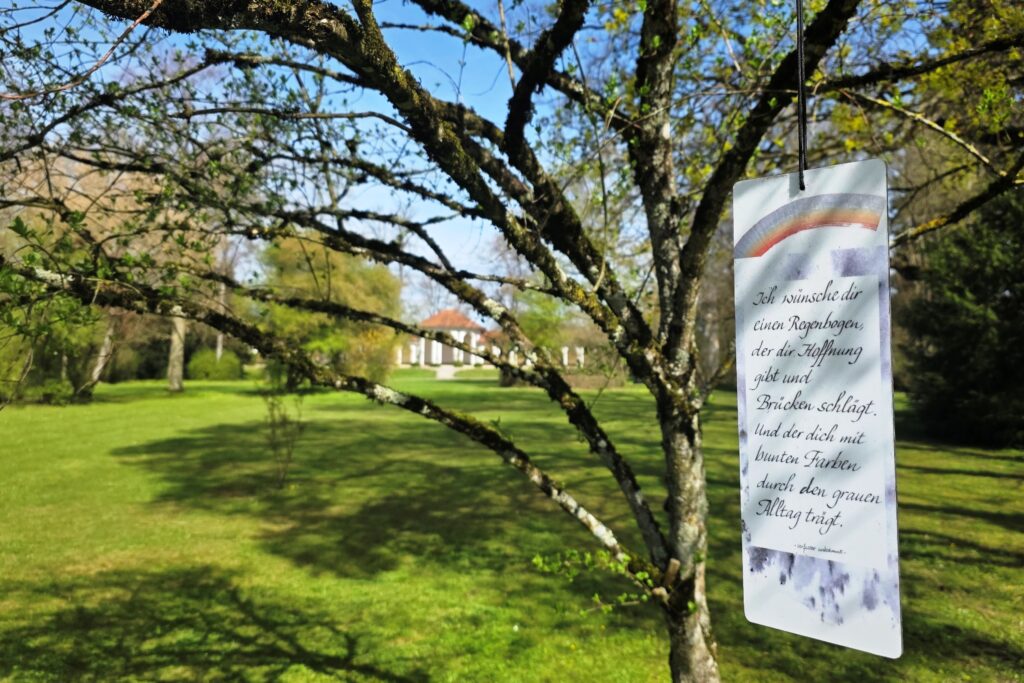 Ich wünsche dir
einen Regenbogen,
der dir Hoffnung
gibt und
Brücken schlägt.
Und der dich mit
bunten Farben
durch den grauen
Alltag trägt.
- Verfasser unbekannt -